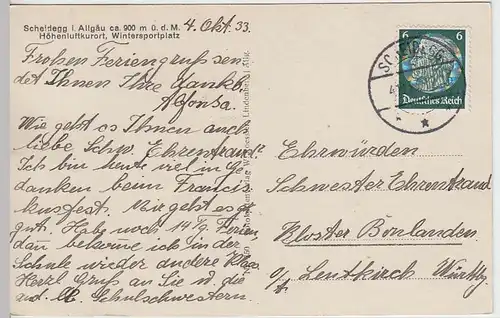 Scheidegg i. Allgäu ca. 900 m ü. d. M.
Höhenluftkurort, Wintersportplatz
4. Okt. 33.
Frohen Feriengruß sen
det Ihnen Ihre dankb.
Alfonsa.
Wie geht es Ihnen auch
liebe Schw. Ehrentraud?
Ich bin heute viel in Ge
danken beim Francis
kusfest. Mir geht es
gut. Habe noch 14 Tg. Ferien,
dan bekome ich in der
Schule wieder andere Klass
Herzl Gruß an Sie u. die
Schulschwestern.
6 6
Deutsches Reich
Ehrwürden
Schwester Ehrentraud
Kloster Bonlanden
Leutkirch Württbg.